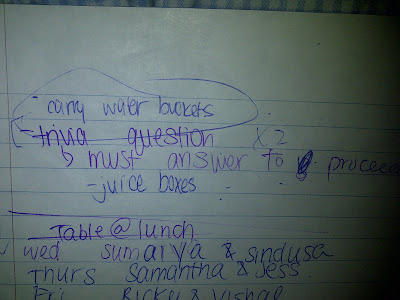 - carry water buckets
- trivia question x2
↳ must answer to proceed
- juice boxes
Table @ lunch
Wed Sumaiya & Sindusa
Thurs Samantha & Jess
Fri Ricky & Vishal